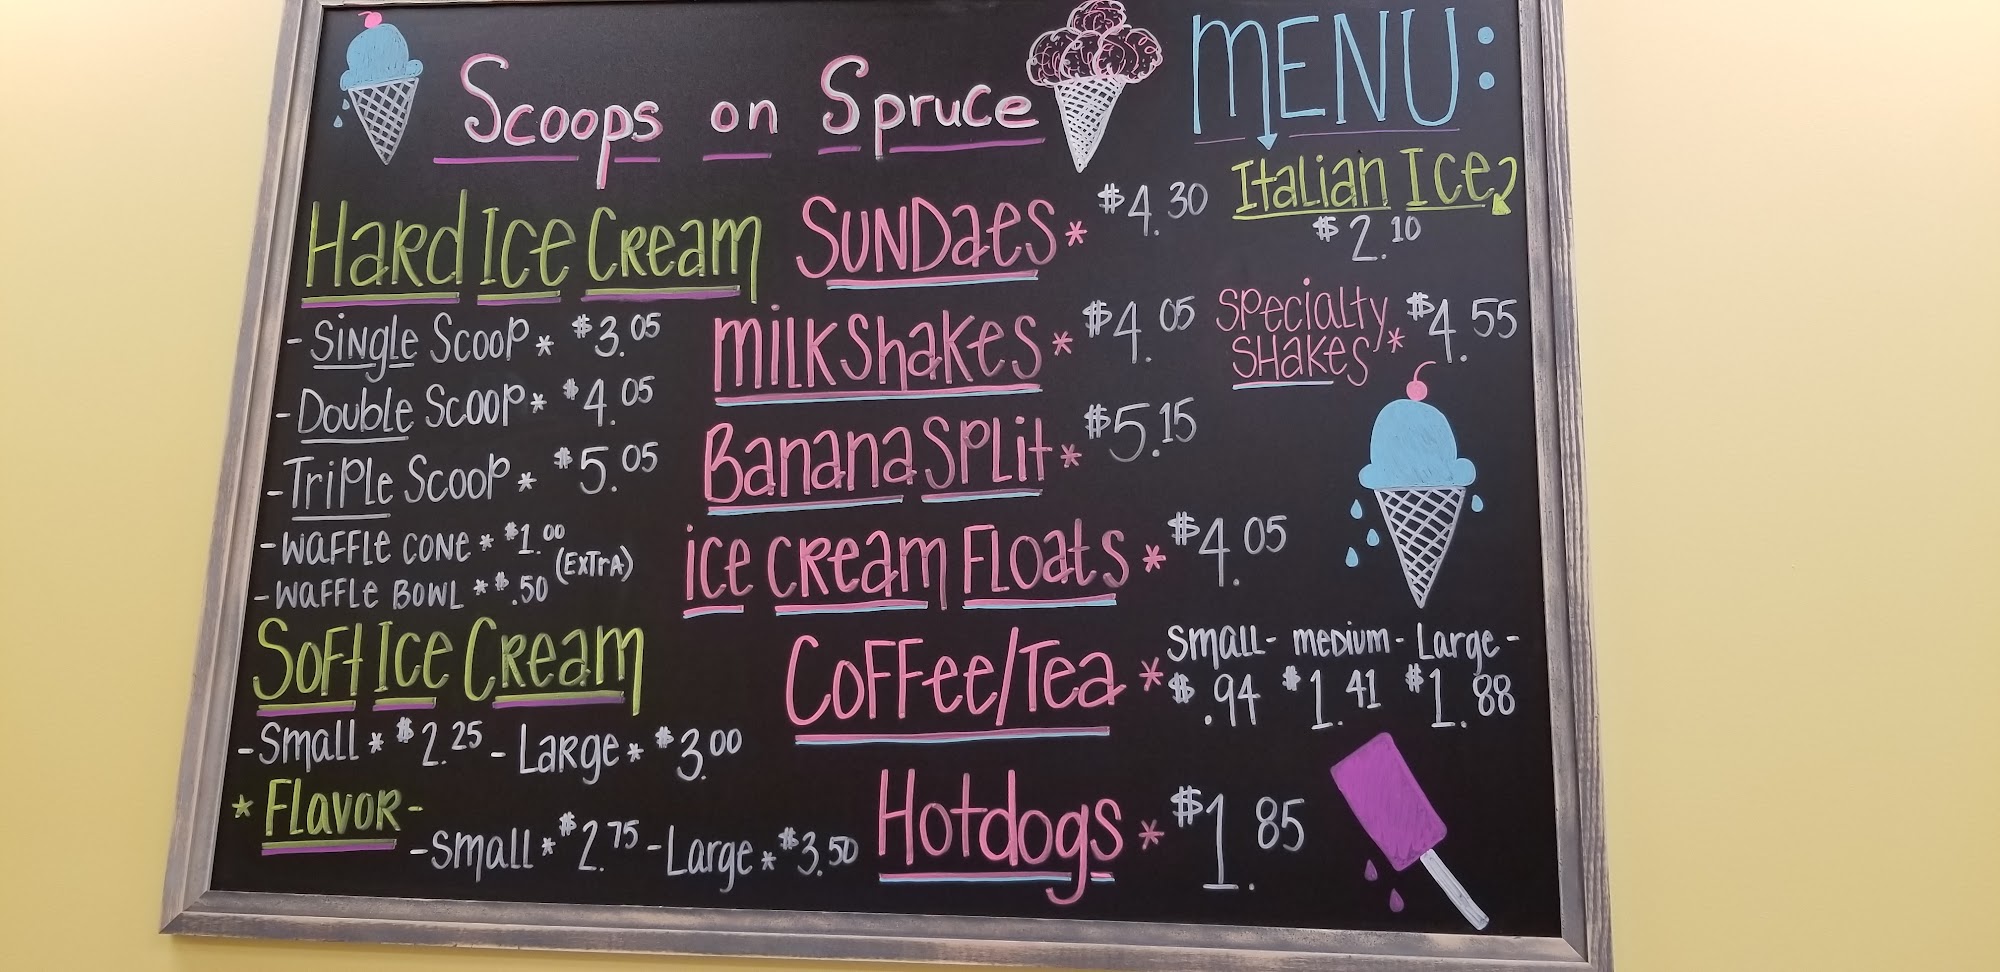 Scoops on Spruce
MENU:
Italian Ice
$2.10
Hard Ice Cream
- Single Scoop * $3.05
- Double Scoop * $4.05
- Triple Scoop * $5.05
- Waffle Cone * $1.00
- Waffle Bowl * $.50 (Extra)
Soft Ice Cream
- Small * $2.25 - Large * $3.00
* Flavor -
- Small * $2.75 - Large * $3.50
Sundaes * $4.30
Milkshakes * $4.05
Specialty Shakes * $4.55
Banana Split * $5.15
Ice Cream Floats * $4.05
Coffee/Tea *
Small - Medium - Large -
$.94 $1.41 $1.88
Hotdogs * $1.85